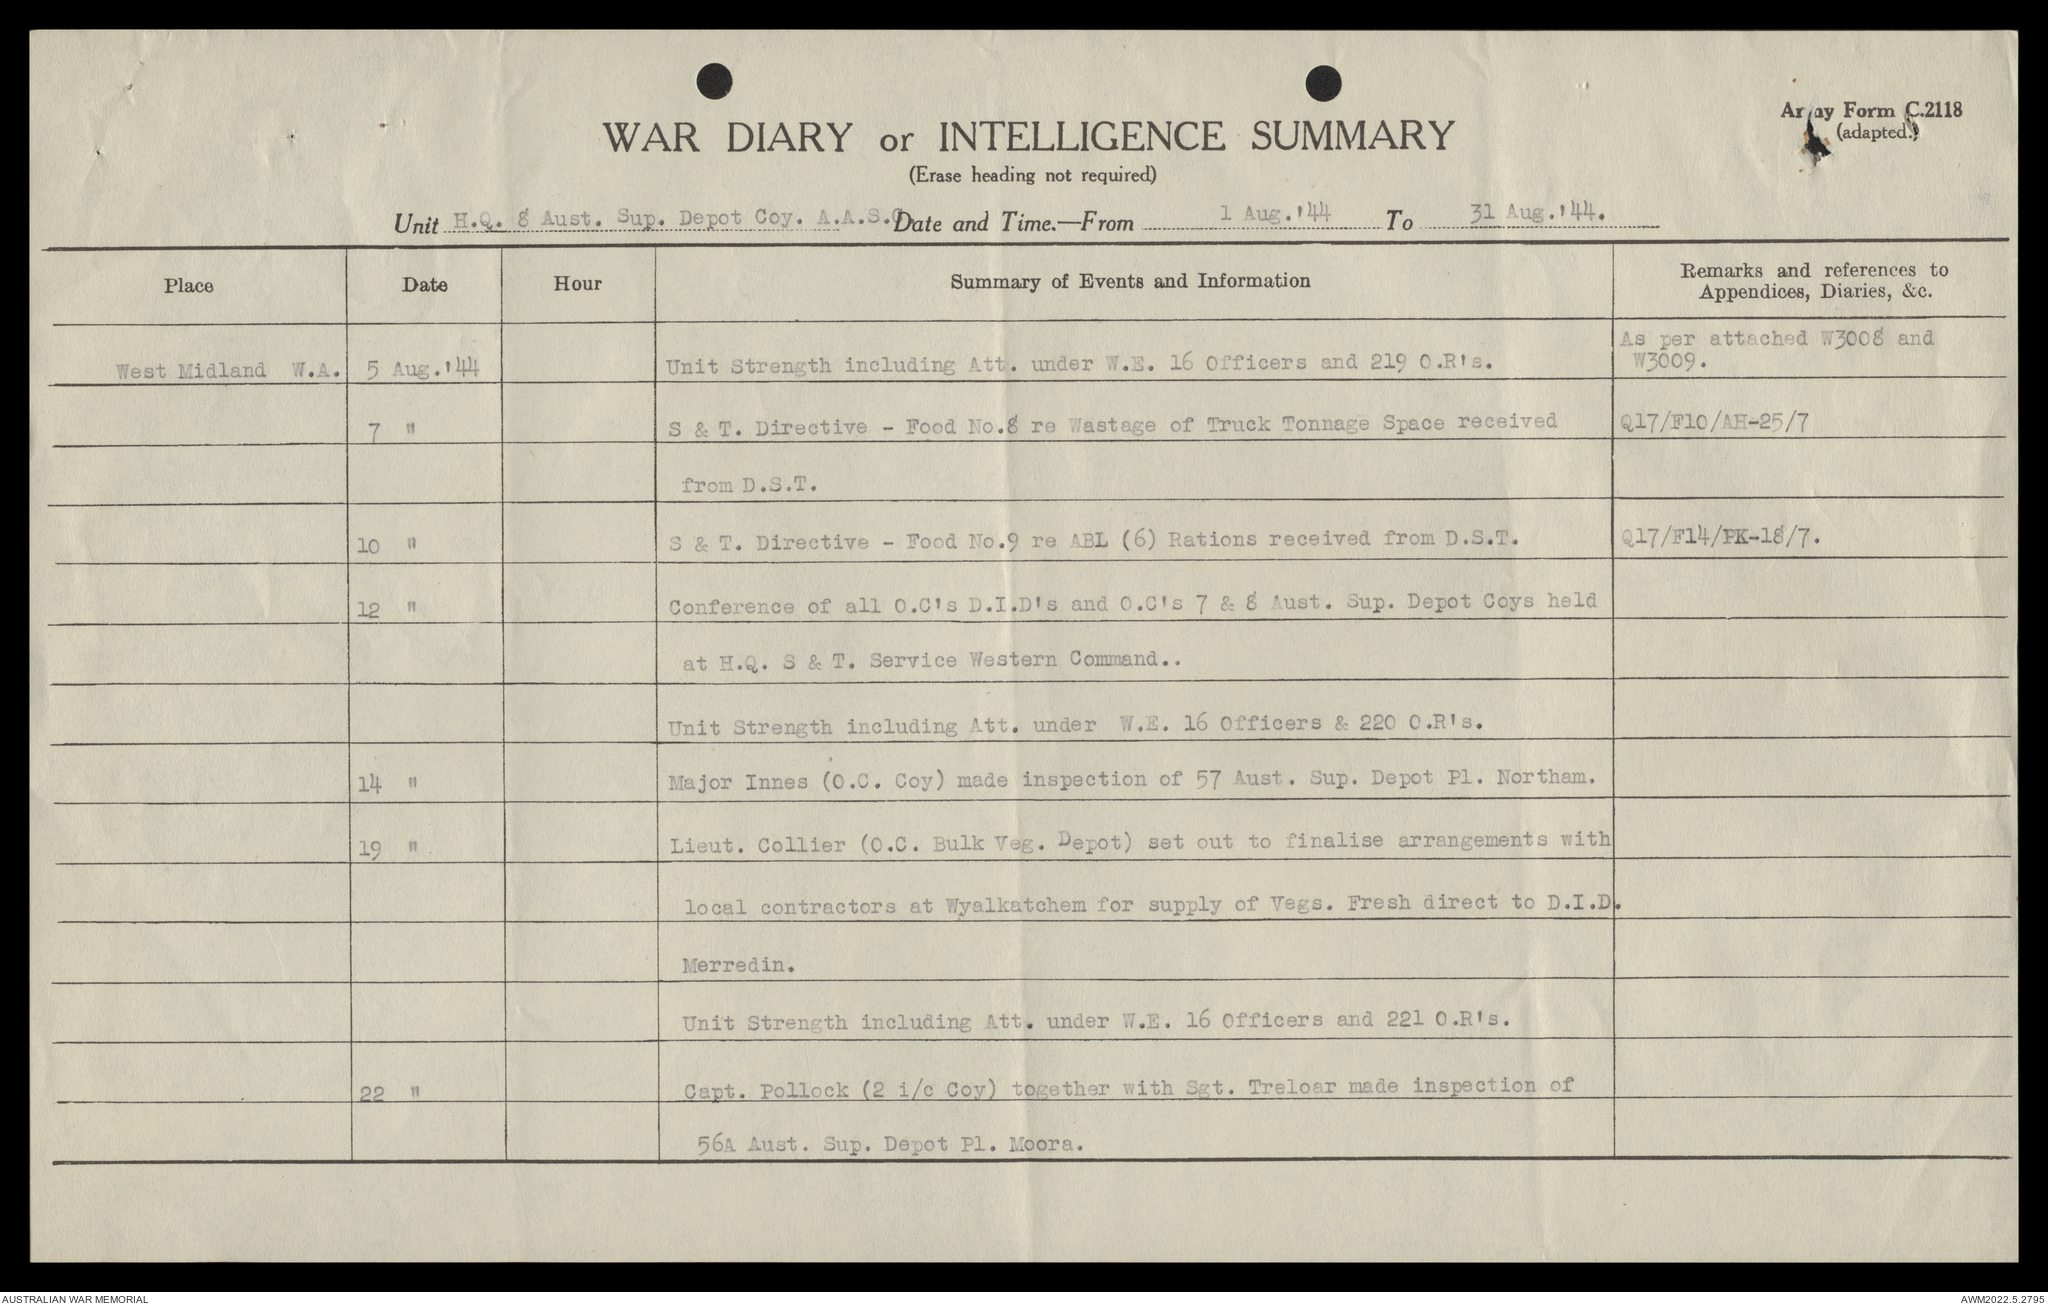 Army Form C.2118
(adapted.)
WAR DIARY or INTELLIGENCE SUMMARY
(Erase heading not required)
Unit H.Q. 8 Aust. Sup. Depot Coy. A.A.S.C. Date and Time.—From 1 Aug.'44 To 31 Aug.'44.
Place Date Hour Summary of Events and Information Remarks and references to
Appendices, Diaries, &c.
As per attached W3008 and
West Midland W.A. 5 Aug.'44 Unit Strength including Att. under W.E. 16 Officers and 219 O.R's. W3009.
7 " S & T. Directive - Food No.8 re Wastage of Truck Tonnage Space received Q17/F10/AH-25/7
from D.S.T.
10 " S & T. Directive - Food No.9 re ABL (6) Rations received from D.S.T. Q17/F14/PK-18/7.
12 " Conference of all O.C's D.I.D's and O.C's 7 & 8 Aust. Sup. Depot Coys held
at H.Q. S & T. Service Western Command..
Unit Strength including Att. under W.E. 16 Officers & 220 O.R's.
14 " Major Innes (O.C. Coy) made inspection of 57 Aust. Sup. Depot Pl. Northam.
19 " Lieut. Collier (O.C. Bulk Veg. Depot) set out to finalise arrangements with
local contractors at Wyalkatchem for supply of Vegs. Fresh direct to D.I.D.
Merredin.
Unit Strength including Att. under W.E. 16 Officers and 221 O.R's.
22 " Capt. Pollock (2 i/c Coy) together with Sgt. Treloar made inspection of
56A Aust. Sup. Depot Pl. Moora.
AUSTRALIAN WAR MEMORIAL AWM2022.5.2795